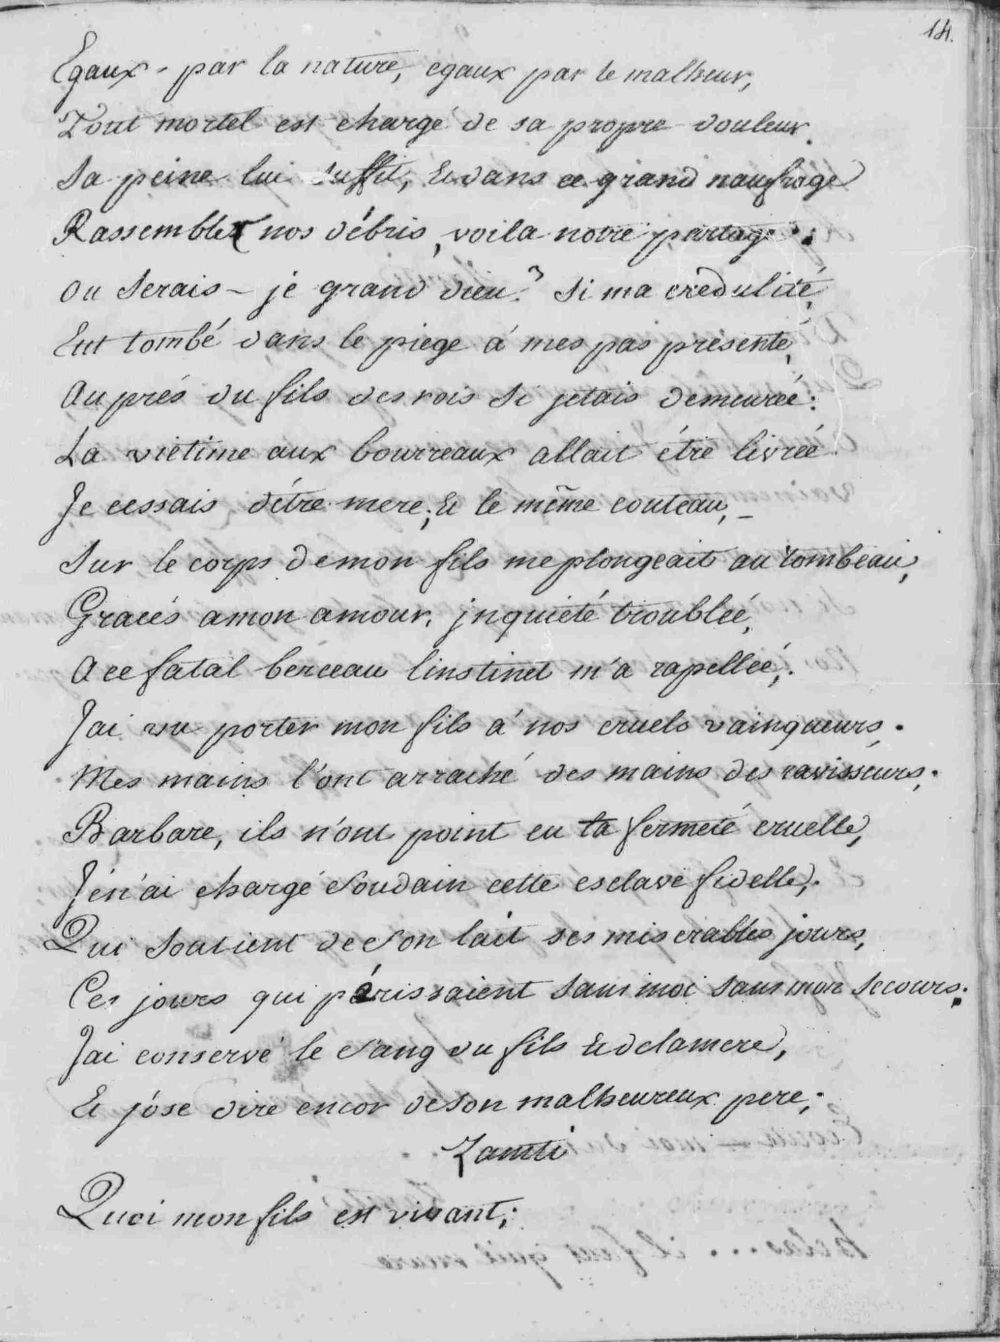 14.
Egaux - par la nature, egaux par le malheur,
Tout mortel est chargé de sa propre douleur.
Sa peine lui suffit, Et dans ce grand naufrage
Rassembler nos débris, voila notre partage.
Ou serais - je grand dieu? si ma crédulité,
Eut tombé dans le piege á mes pas présenté,
Au prés du fils des rois si jetais demeurée:
La victime aux bourreaux allait étre livrée.
Je cessais détre mere; Et le même couteau, -
Sur le corps de mon fils me plongeait au tombeau,
Graces a mon amour, jnquiété troublée,
A ce fatal berceau linstinct m'a rapellée;
Jai vu porter mon fils á nos cruels vainqueurs.
Mes mains l'ont arraché des mains des ravisseurs,
Barbare, ils n'ont point eu ta fermeté cruelle,
J'en'ai chargé Soudain cette esclave fidelle,
Qui soutient de Son lait ses miserables jours,
Ces jours qui périssaient sans moi sans mon secours;
Jai conservé le sang du fils Et de la mere,
Et jóse dire encor de son malheureux pere;
Zamti
Quoi mon fils est vivant;